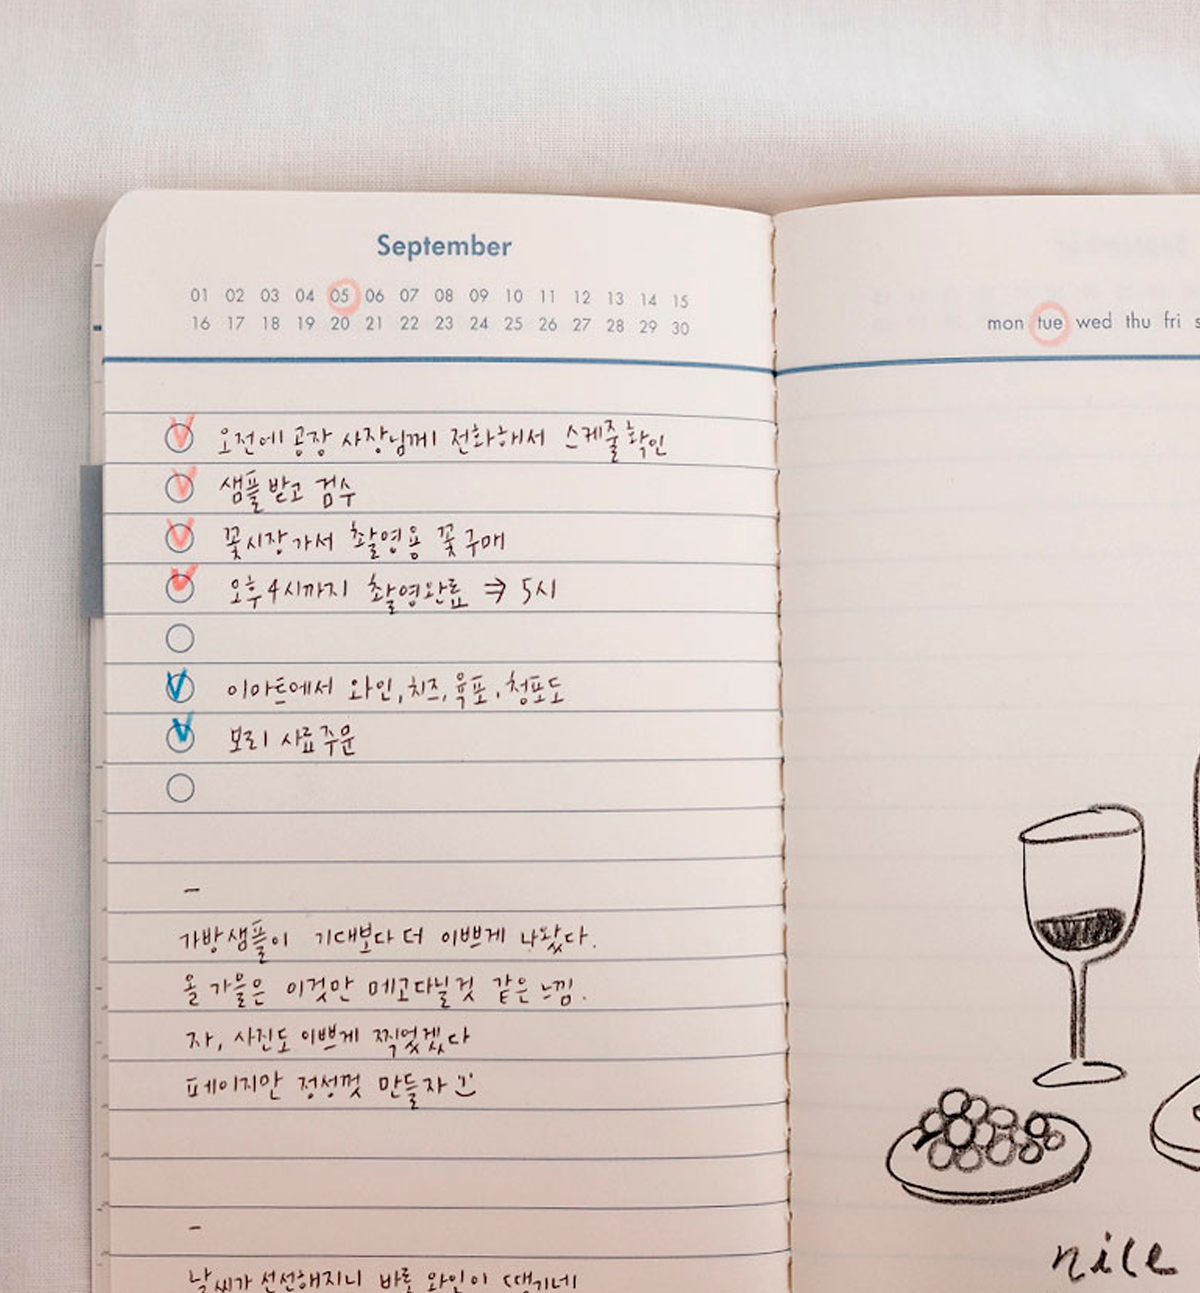 September
01 02 03 04 05 06 07 08 09 10 11 12 13 14 15
16 17 18 19 20 21 22 23 24 25 26 27 28 29 30
오전에 공장 사장님께 전화해서 스케줄 확인
샘플 받고 검수
꽃시장 가서 촬영용 꽃 구매
오후 4시까지 촬영완료 ⇒ 5시
이마트에서 와인, 치즈, 육포, 청포도
보리 사료 주문
-
가방샘플이 기대보다 더 이쁘게 나왔다.
올 가을은 이것만 메고다닐것 같은 느낌.
자, 사진도 이쁘게 찍었겠다
페이지만 정성껏 만들자
-
날씨가 선선해지니 바로 와인이 땡기네
mon tue wed thu fri
nice